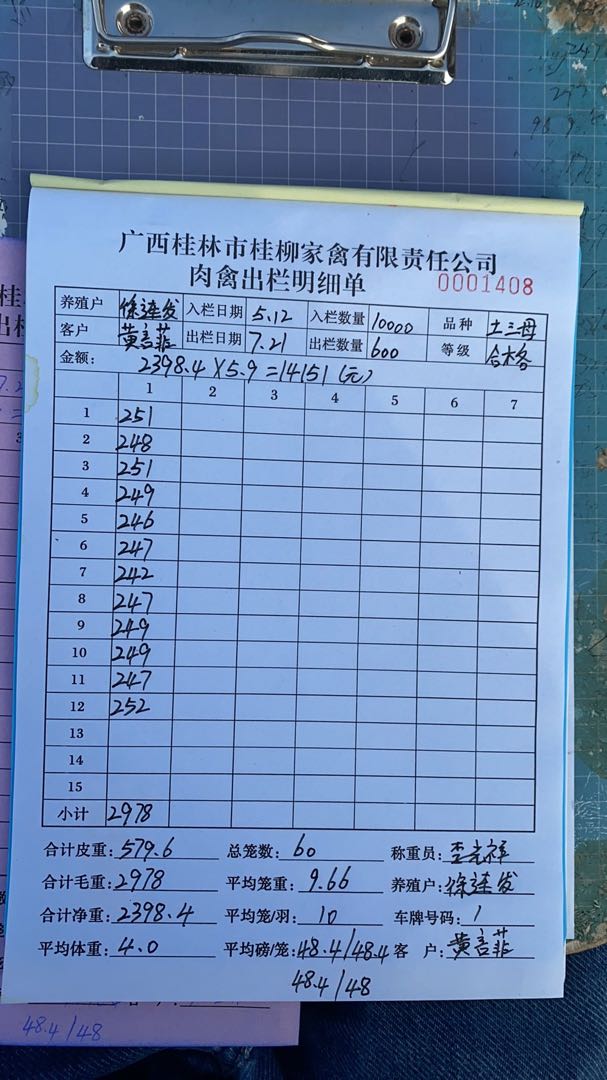 广西桂林市桂柳家禽有限责任公司
肉禽出栏明细单 0001408
养殖户 徐连发 入栏日期 5.12 入栏数量 10000 品种 土三母
客户 黄言菲 出栏日期 7.21 出栏数量 600 等级 合格
金额: 2398.4×5.9=14151(元)
1 2 3 4 5 6 7
1 251
2 248
3 251
4 249
5 246
6 247
7 242
8 247
9 249
10 249
11 247
12 252
13
14
15
小计 2978
合计皮重: 579.6 总笼数: 60 称重员: 李光祥
合计毛重: 2978 平均笼重: 9.66 养殖户: 徐连发
合计净重: 2398.4 平均笼/羽: 10 车牌号码: 1
平均体重: 4.0 平均磅/笼: 48.4/48.4 客 户: 黄言菲
48.4/48
48.4/48